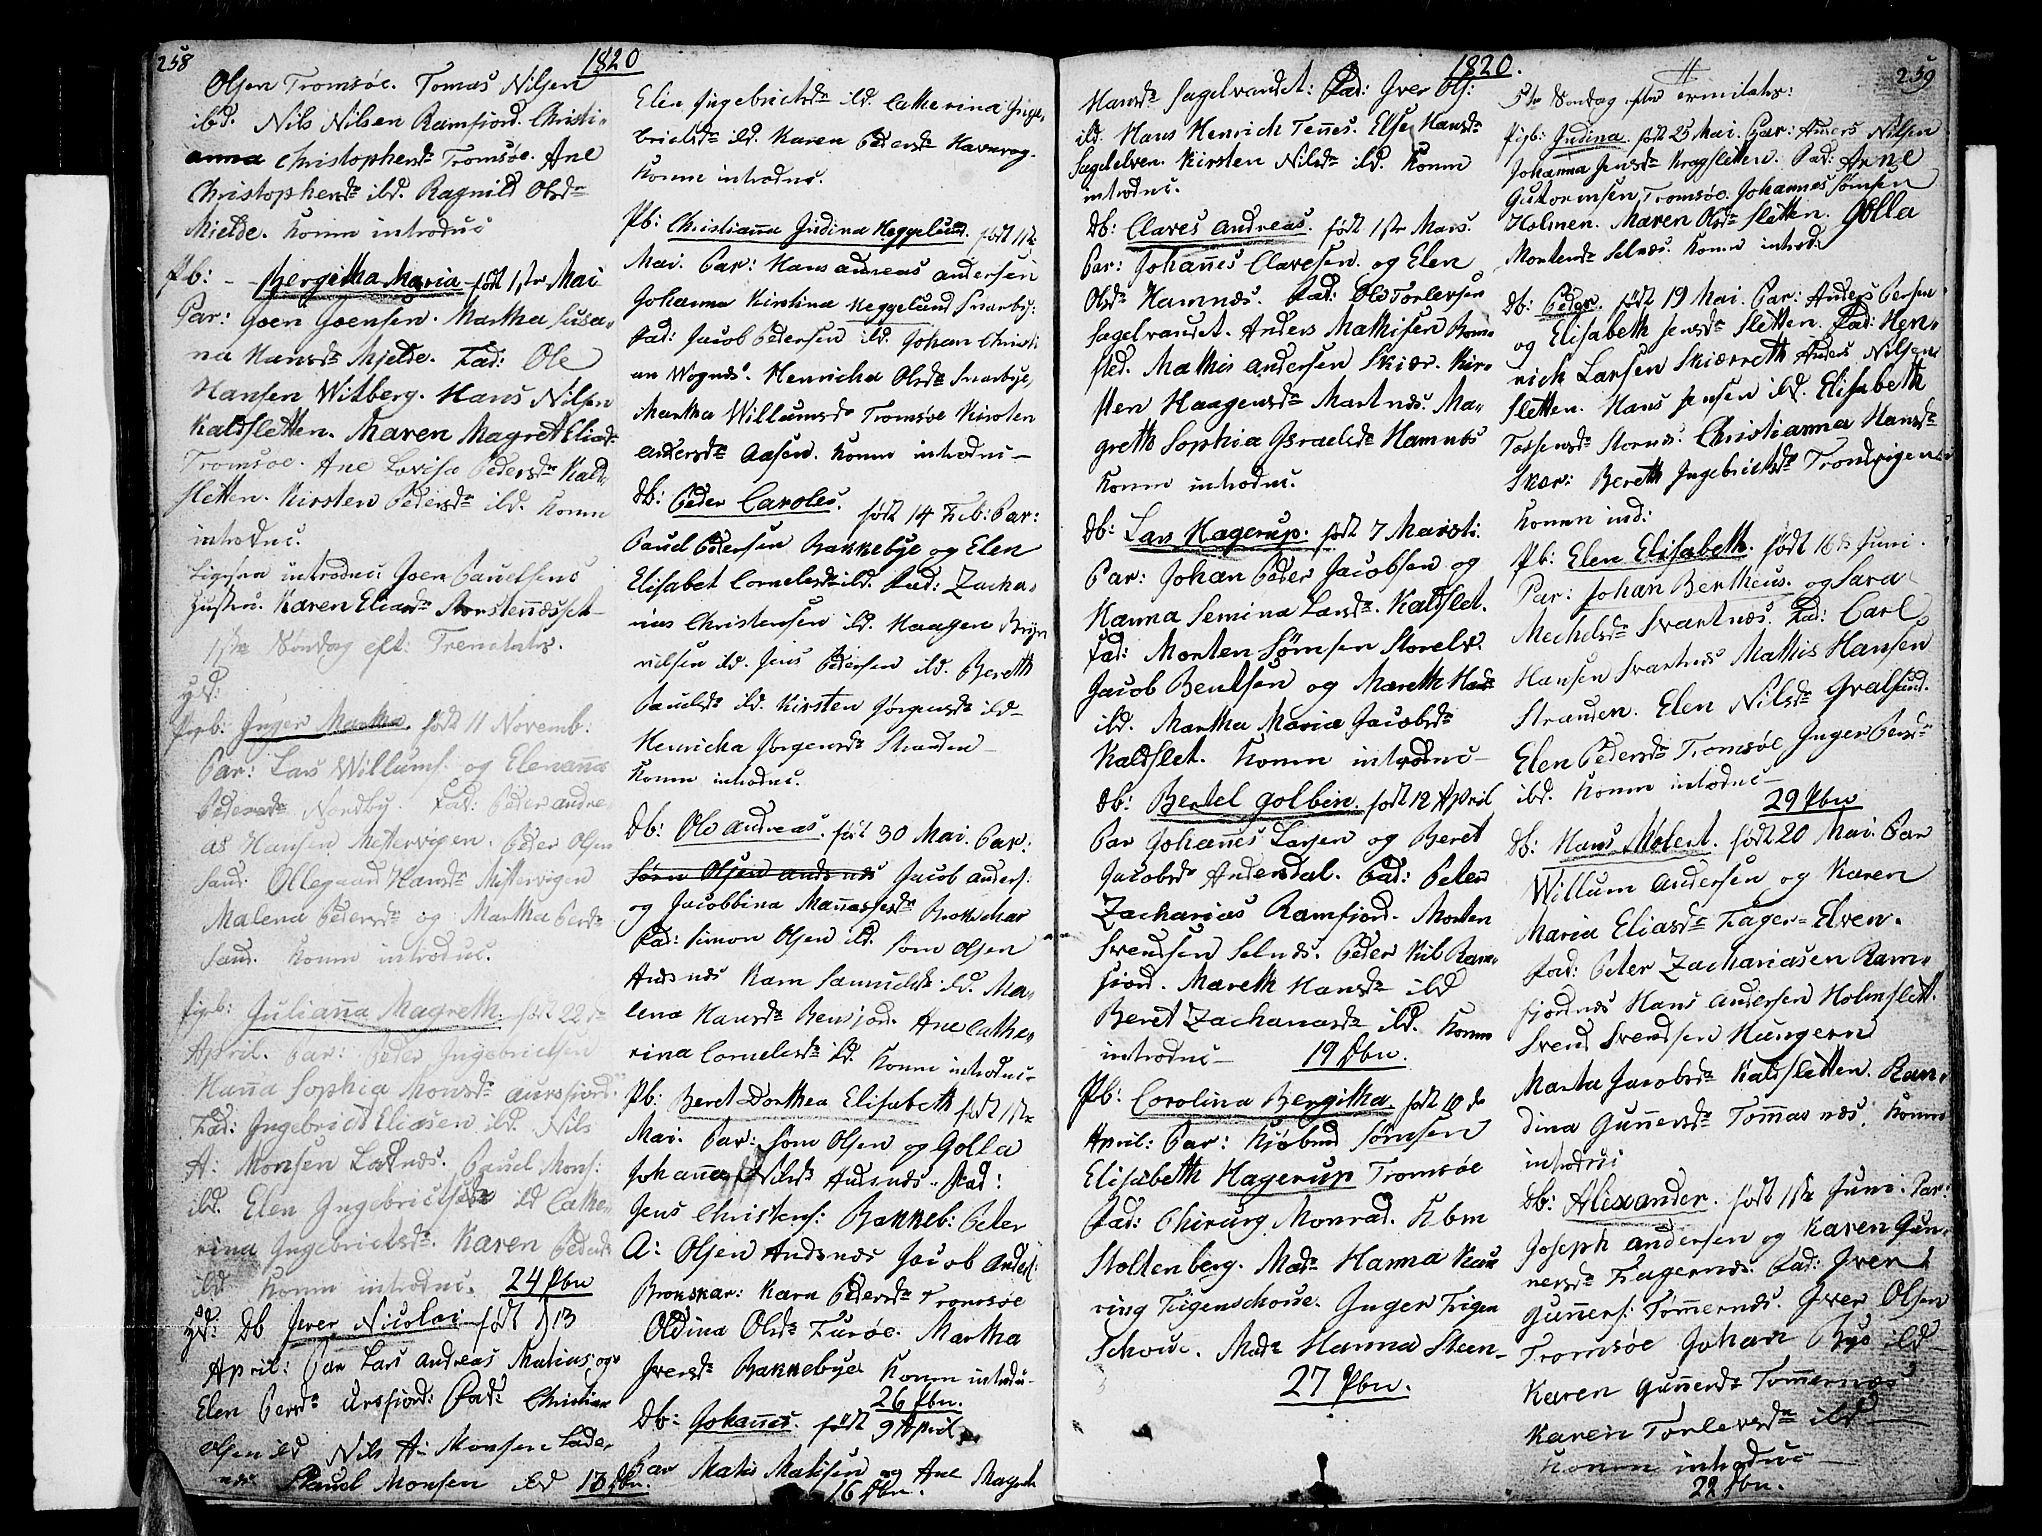 258
1820
Olsen Tromsøe. Tomas Nilsen
ibd. Nils Nilsen Ramfiord. Christi-
anna Christophersdr Tromsøe. Ane
Christophersdr ibd. Ragnild Olsdr
Mielde. Konen introduc
Pb: Bergitha Maria født 1ste Mai
Par: Joen Joensen. Martha Susa-
na Hansdr Mjelde. Fad: Ole
Hansen Witberg. Hans Nilsen
Kaldsletten. Maren Magret Eliasdr
Tromsøe. Ane Lovise Pedersdr Kald-
sletten. Kirsten Pedersdr ibd. Konen
introduc.
Ligesaa introduc Joen Pauelsens
Hustru. Karen Eliasdr Storstennæsset
1ste Søndag eft: Trenitatis.
Pigb: Inger Martha født 11 Novemb:
Par: Lars Willums. og Elenanna
Pedersdr Nordby. Fad: Peder Andre-
as Hansen Mettervigen. Peder Olsen
Sand. Ollegaard Hansdr Mittervigen
Malena Pedersdr og Martha Persdr
Sand. Konen introduc.
Pigb: Julianna Magreth født 22de
April. Par: Peder Ingebrictsen
Hanna Sophia Monsdr Aursfiord.
Fad: Ingebrict Eliasen ibd. Nils
A: Monsen Ladnæs. Pauel Mons:
ibd. Elen Ingebrictsdr ibd Cathe-
rina Ingebrictsdr. Karen Pedersdr
ibd Konen introduc. 24 Pbn
Db Iver Nicolai født D 13
April: Par Lars Andreas Matius og
Elen Persdr Ursfiord: Fad: Christian
Olsen ibd Nils A: Monsen Lade-
næs Pauel Monsen ibd 13 Pbn.
Elen Ingebrictsdr ibd. Catherina Inge-
brictsdr ibd Karen Pedersdr Havnvog.
Konen introduc.
Pb: Christianna Judina Heggelund. født 11te
Mai. Par: Hans Andreas Andersen
Johanna Kirstina Heggelund Snarby:
Fad: Jacob Pedersen ibd. Johan Christi
an Wognæs. Henricha Olsdr Snarbye,
Martha Willumsdr Tromsøe Kirsten
Andersdr Aasen. Konen introduc
Db: Peder Caroles. født 14 Feb: Par:
Pauel Pedersen Bakkebye og Elen
Elisabet Cornelisdr ibd. Fad: Zacha-
rias Christensen ibd. Haagen Bryn
nilsen ibd. Jens Pedersen ibd. Bereth
Pauelsdr ibd. Kirsten Jørgensdr ibd
Henricha Jørgensdr Stranden
Konen introduc.
Db: Ole Andreas. født 30 Mai. Par:
Søren Olsen Andsnæs Jacob Anders:
og Jacobbina Manassesdr Brokskar
Fad: Simon Olsen ibd. Søm Olsen
Andsnæs Karn Samuelsdr ibd. Ma-
lena Hansdr Bensjord. Ane Cathe-
rina Cornelisdr ibd. Konen introduc.
Pb: Beret Dorthea Elisabeth født 1ste
Mai. Par: Søm Olsen og Golla
Johanna Nilsdr Andsnæs. Fad:
Jens Christens: Bakkeb: Peter
A: Olsen Andsnæs Jacob Anders:
Brokskar: Karn Pedersdr Tromsøe
Oldina Olsdr Turøe. Martha
Iversdr Bakkebye Konen introdu-
26 Pbn.
Db: Johannes. født 9 April
Par Mats Matisen og Ane Magreth
16 Pbn.
1820.
259
Hansdr Sagelvandet: Fad: Iver Ols:
ibd. Hans Henrich Tennes. Else Hansdr
Sagelven. Kirsten Nilsdr ibd. Konen
introduc.
Db: Claves Andreas. født 1ste Mars.
Par: Johannes Clavesen. og Elen
Olsdr Hamnæs. Fad: Ole Torlevsen
Sagelvandet. Anders Mathisen Bom-
sted. Mathis Andersen Skiær. Kir-
sten Haagensdr Martnæs. Ma-
greth Sophia Israelsdr Hamnes
Konen introduc.
Db: Lars Hagerup. født 7 Marsti.
Par: Johan Peder Jacobsen og
Hanna Semina Larsdr. Kaldslet.
Fad: Morten Sømsen Storelv.
Jacob Bentsen og Mareth Hansdr
ibd. Martha Maria Jacobsdr
Kaldslet. Konen introduc
Db: Bertel Golbin. født 12 April
Par Johannes Larsen og Beret
Jacobsdr Andersdal. Fad: Peter
Zacharias Ramfjord. Morten
Svendsen Selnæs. Peder Kil Ram-
fjord. Mareth Hansdr ibd
Beret Zachariasdr ibd. Konen
introduc 19 Pbn.
Pb: Carolina Bergitha. født 10de
April: Par: Kiøbmd Sømsen
Elisabeth Hagerup Tromsøe
Fad: Chirurg Monrad. Kbm
Stoltenberg. Made Hanna Kaa
ring Figenschoue. Inger Figen
Schoue. Made Hanna Steen
27 Pbn.
5te Søndag efter Trenitatis:
Pigb: Judina født 25 Mai. Par: Anders Nilsen
Johanna Jensdr Kragsletten. Fad: Arne
Gutormsen Tromsøe. Johannes Sømsen
Holmen. Maren Olsdr Sletten. Golla
Mortensdr Selnæs. Konen introd.
Db: Peder. født 19 Mai. Par: Anders Persen
og Elisabeth Jensdr Sletten. Fad: Hen-
rich Larsen Skiærreth Anders Nilsen
Sletten. Hans Jensen ibd. Elisabeth
Torsensdr Stornæs. Christianna Hansdr
Skar: Bereth Ingebrictsdr Tromvigen
Konen ind:
Pb: Elen Elisabeth. født 16de Juni.
Par: Johan Bertheus. og Sara
Mechelsdr Svartnæs. Fad: Carl
Hansen Svartnæs Mathis Hansen
Stranden. Elen Nilsdr Gvalsund.
Elen Pedersdr Tromsøe Inger Persdr
ibd. Konen introduc
29 Pbn
Db: Hans Molert. født 20 Mai. Par
Willum Andersen og Karen
Maria Eliasdr Fager-Elven.
Fad: Peter Zachariasen Ram-
fjordnæs Hans Andersen Holmslett.
Svend Svendsen Hungeren
Marta Jacobsdr Kaldsletten. Ran-
dina Gunnersdr Tommasnæs. Konen
introduc
Db: Alixander. født 1ste Juni. Par:
Joseph Andersen og Karen Gun-
nersdr Fagernæs. Fad: Iver
Gunners: Tømmernæs. Iver Olsen
Tromsøe Johan Bye ibd
Karen Gunnersdr Tømmernæs
Karen Torlevsdr ibd
Konen introduc
22 Pbn.